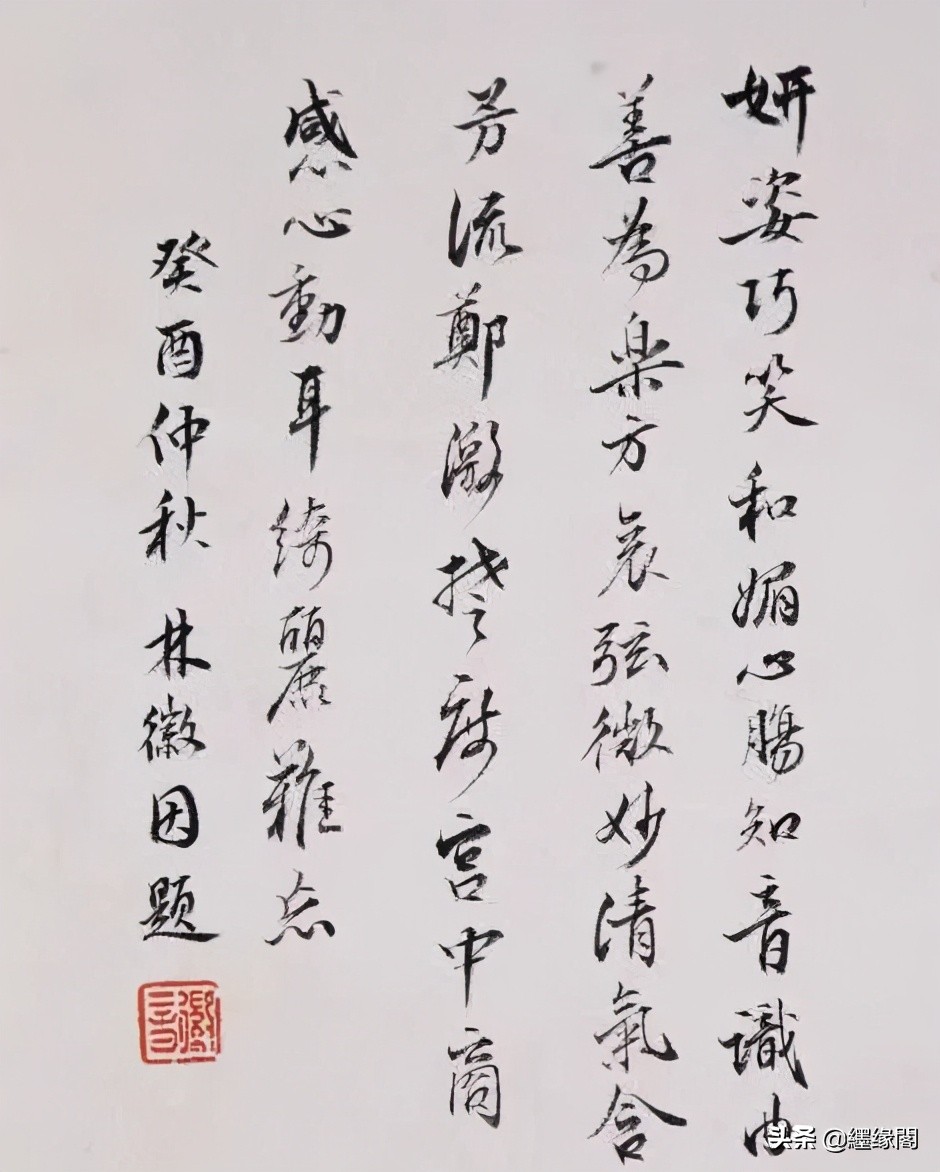 妍姿巧笑和媚心腸知音識曲
善為楽方哀弦微妙清氣含
芳流鄭激楚度宮中商
感心動耳綺麗難忘
癸酉仲秋 林徽因題
徽音
头条 @纆缘閣